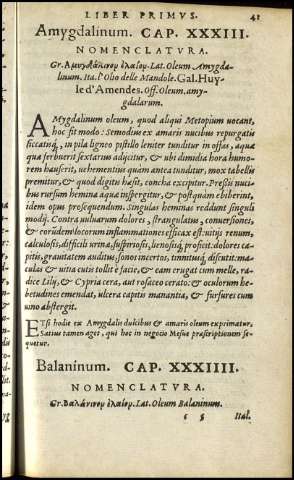 LIBER PRIMVS. 41
Amygdalinum. CAP. XXXIII.
NOMENCLATVRA.
Gr. Αμυγδάλινον ἔλαιον. Lat. Oleum Amygda-
linum. Ita. l'Olio delle Mandole. Gal. Huy-
le d'Amendes. Off. Oleum, amy-
gdalarum.
AMygdalinum oleum, quod aliqui Metopium uocant,
hoc fit modo: Semodius ex amaris nucibus repurgatis
siccatisq́;, in pila ligneo pistillo leniter tunditur in offas, aquæ
quæ ferbuerit sextarius adijcitur, & ubi dimidia hora humo-
rem hauserit, uehementius quam antea tunditur, mox tabellis
premitur, & quod digitis hæsit, concha excipitur. Pressis nuci-
bus rursum hemina aquæ inspergitur, & postquàm ebiberint,
idem opus prosequendum. Singulas heminas reddunt singuli
modij. Contra uuluarum dolores, strangulatus, conuersiones,
& eorundem locorum inflammationes efficax est: uitijs renum,
calculosis, difficili urina, suspiriosis, lienosisq́; proficit: dolores ca-
pitis, grauitatem auditus, sonos incertos, tinnitusq́; discutit: ma-
culas & uitia cutis tollit è facie, & eam erugat cum melle, ra-
dice Lilij, & Cypria cera, aut rosaceo cerato: & oculorum he-
betudines emendat, ulcera capitis manantia, & furfures cum
uino abstergit.
ETsi hodie ex Amygdalis dulcibus & amaris oleum exprimatur,
Satius tamen aget, qui hoc in negocio Mesuæ præscriptionem se-
quetur.
Balaninum. CAP. XXXIIII.
NOMENCLATVRA.
Gr. Βαλάνινον ἔλαιον. Lat. Oleum Balaninum.
Ital.